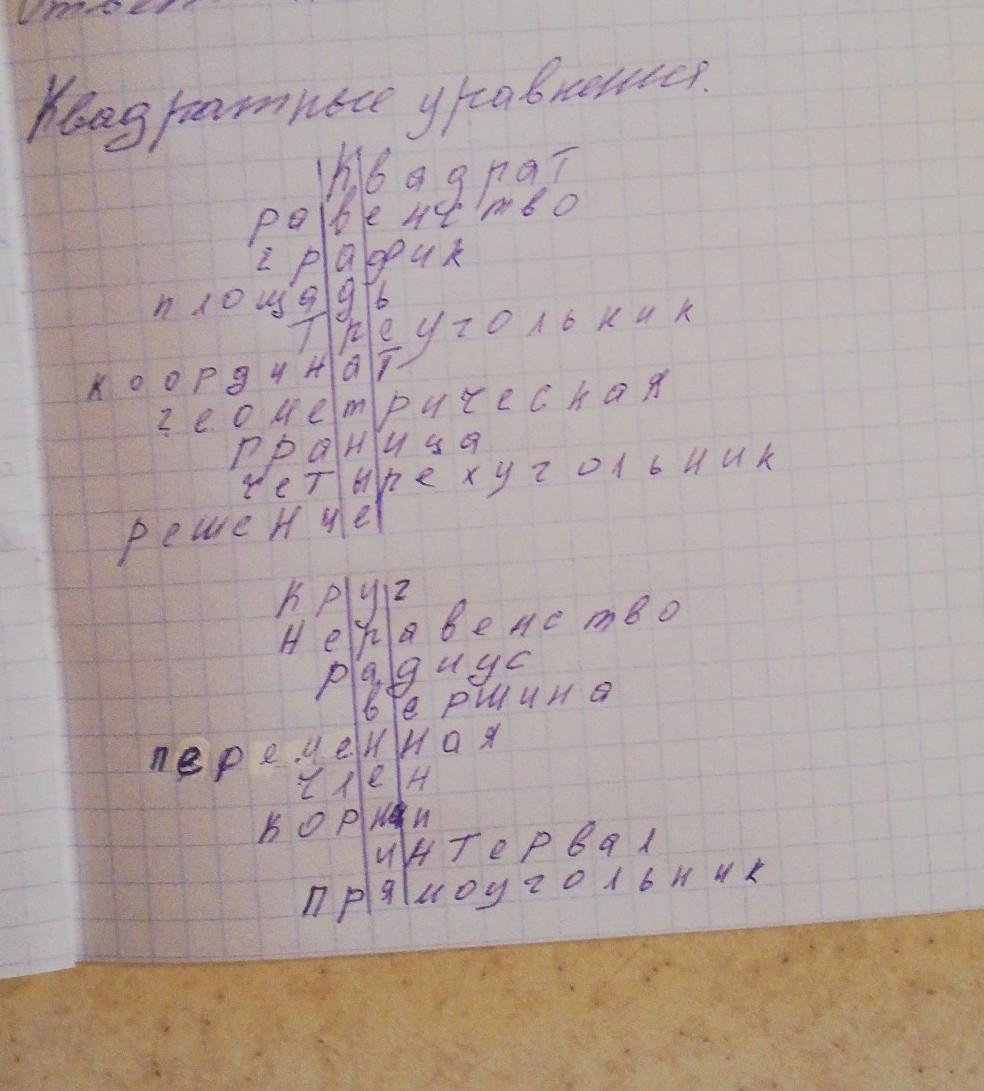 Ответ
Квадратные уравнения.
Квадрат
равенство
график
площадь
Треугольник
координат
геометрическая
граница
четырехугольник
решение
круг
неравенство
радиус
вершина
переменная
член
корни
интервал
прямоугольник